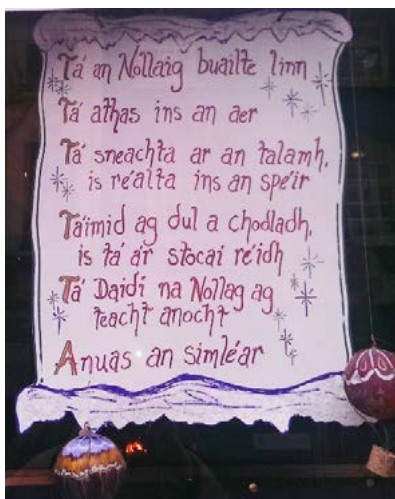 Tá an Nollaig buailte linn
Tá athas ins an aer
Tá sneachta ar an talamh,
is réalta ins an spéir
Táimid ag dul a chodladh,
is tá ár stocaí réidh
Tá Daidí na Nollag ag
teacht anocht
Anuas an simléar